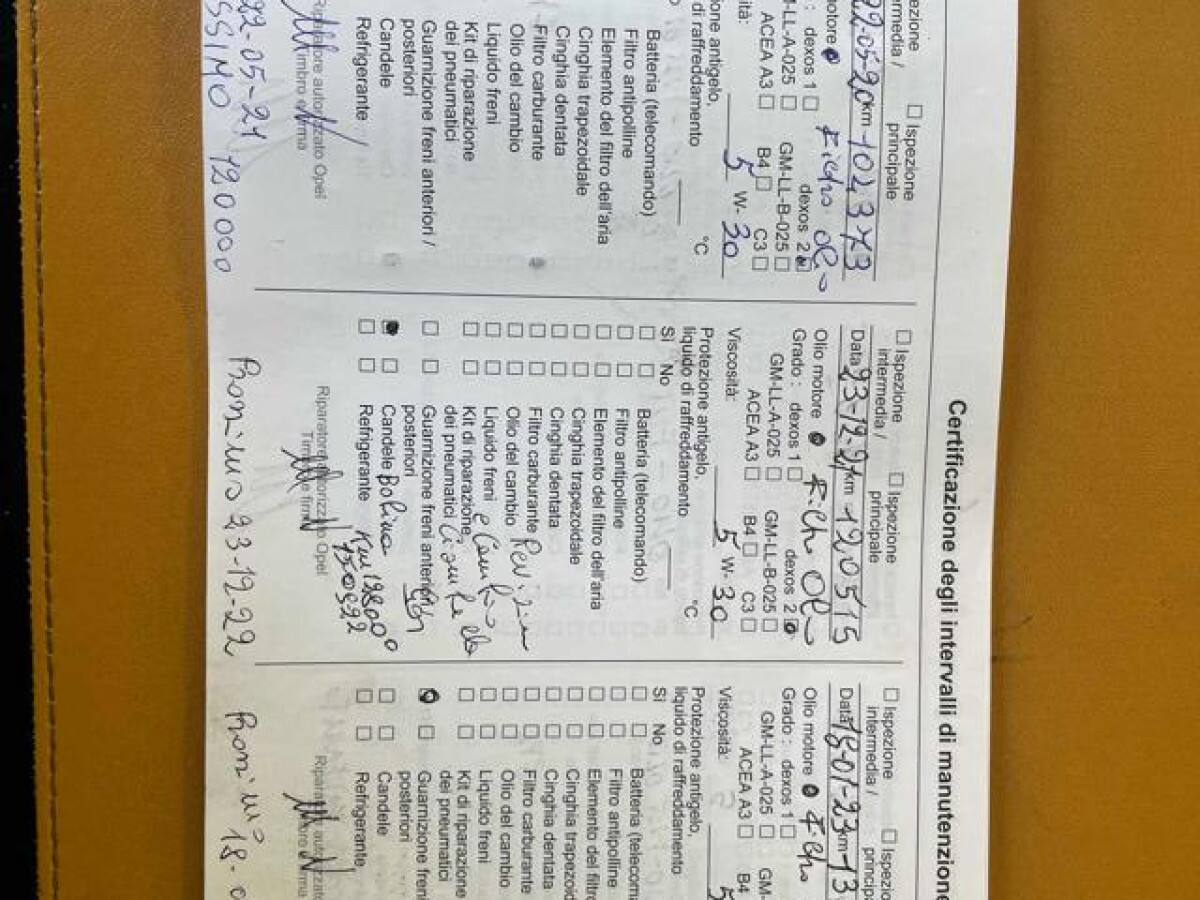 Certificazione degli intervalli di manutenzione
Ispezione
intermedia /
Ispezione
principale
22-05-20 km 102373
motore Filtro Olio
: dexos 1 dexos 2
M-LL-A-025 GM-LL-B-025
ACEA A3 B4 C3
sità: 5 W- 30
ione antigelo,
di raffreddamento °C
Batteria (telecomando)
Filtro antipolline
Elemento del filtro dell'aria
Cinghia trapezoidale
Cinghia dentata
Filtro carburante
Olio del cambio
Liquido freni
Kit di riparazione
dei pneumatici
Guarnizione freni anteriori /
posteriori
Candele
Refrigerante
Riparatore autorizzato Opel
Timbro e firma
22-05-21
SSIMO 120000
Ispezione
intermedia /
Ispezione
principale
Data 23-12-21 km 120515
Olio motore Filtro Olio
Grado : dexos 1 dexos 2
GM-LL-A-025 GM-LL-B-025
ACEA A3 B4 C3
Viscosità: 5 W- 30
Protezione antigelo,
liquido di raffreddamento °C
Sì No
Batteria (telecomando)
Filtro antipolline
Elemento del filtro dell'aria
Cinghia trapezoidale
Cinghia dentata
Filtro carburante
Olio del cambio
Liquido freni
Kit di riparazione
dei pneumatici
Guarnizione freni anteriori /
posteriori
Candele Bobina
Refrigerante
Riparatore autorizzato Opel
Timbro e firma
23-12-22
Ispezione
intermedia /
Ispezione
principale
Data 18-01-23 km 13
Olio motore Filtro
Grado : dexos 1
GM-LL-A-025 GM-
ACEA A3 B4
Viscosità: 5
Protezione antigelo,
liquido di raffreddamento
Sì No
Batteria (telecoma
Filtro antipolline
Elemento del filtro
Cinghia trapezoid
Cinghia dentata
Filtro carburante
Olio del cambio
Liquido freni
Kit di riparazione
dei pneumatici
Guarnizione freni
posteriori
Candele
Refrigerante
18.0